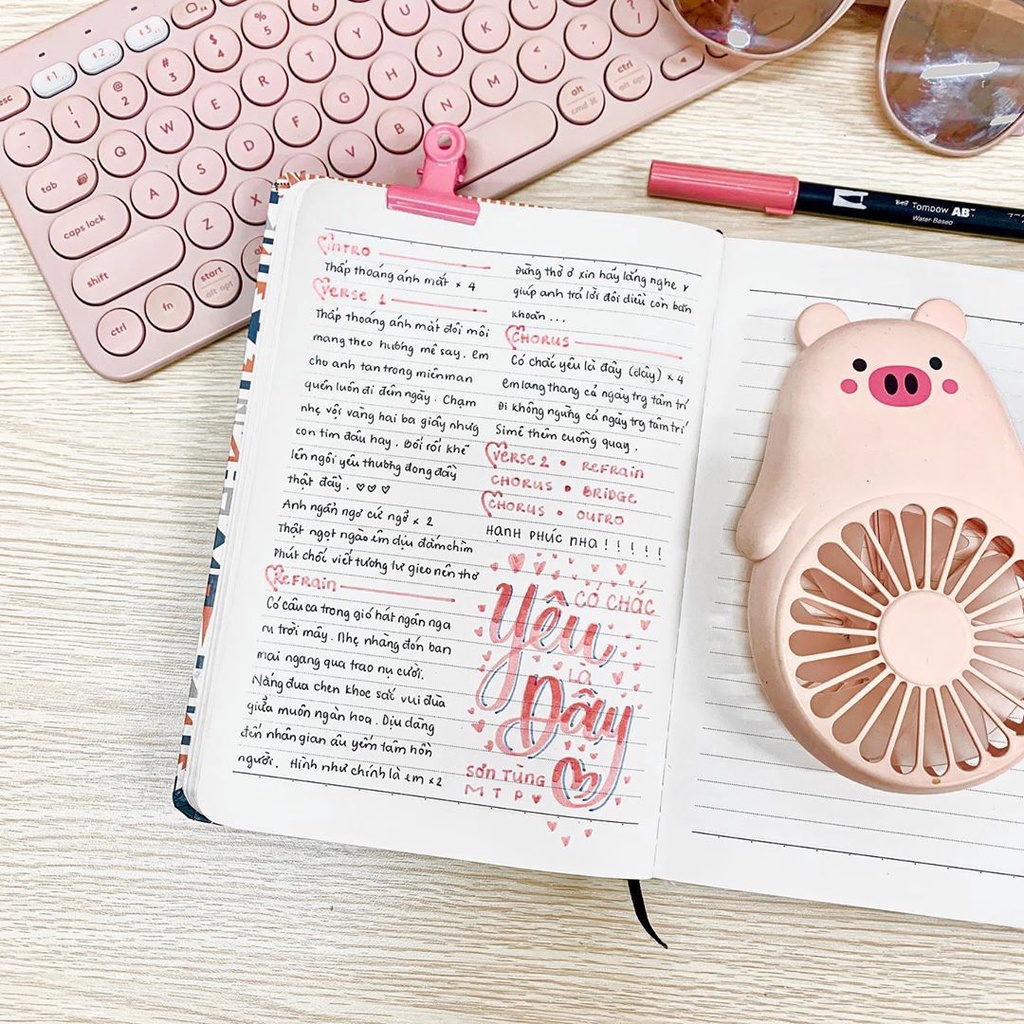 esc
F1
F2
F3
~
`
!
1
@
2
#
3
$
4
%
5
6
7
tab
Q
W
E
R
T
Y
U
caps lock
A
S
D
F
G
H
J
K
L
shift
Z
X
C
V
B
N
M
<
,
>
.
?
/
ctrl
fn
start
alt opt
alt
cmd ⌘
ctrl
alt opt
Tombow AB
Water Based
INTRO
Thấp thoáng ánh mắt × 4
VERSE 1
Thấp thoáng ánh mắt đôi môi
mang theo hương mê say. em
cho anh tan trong miên man
quên luôn đi đêm ngày. Chạm
nhẹ vội vàng hai ba giây nhưng
con tim đâu hay. Bối rối khẽ
lên ngôi yêu thương đong đầy
thật đầy. ♡♡♡
Anh ngẩn ngơ cứ ngỡ × 2
Thật ngọt ngào êm dịu đắm chìm
Phút chốc viết tương tư gieo nên thơ
REFRAIN
Có câu ca trong gió hát ngân nga
ru trời mây. Nhẹ nhàng đón ban
mai ngang qua trao nụ cười.
Nắng đua chen khoe sắc vui đùa
giữa muôn ngàn hoa. Dịu dàng
đến nhân gian âu yếm tâm hồn
người. Hình như chính là em ×2
Đừng thở ơ xin hãy lắng nghe v
giúp anh trả lời đôi điều còn băn
khoăn ...
CHORUS
Có chắc yêu là đây (dây) × 4
Em lang thang cả ngày trg tâm trí
Đi không ngừng cả ngày trg tâm trí
Si mê thêm cuồng quay.
VERSE 2 • REFRAIN
CHORUS • BRIDGE
CHORUS • OUTRO
HẠNH PHÚC NHA ! ! ! ! !
CÓ CHẮC
Yêu
LÀ
Đây
SƠN TÙNG
M T P ♥